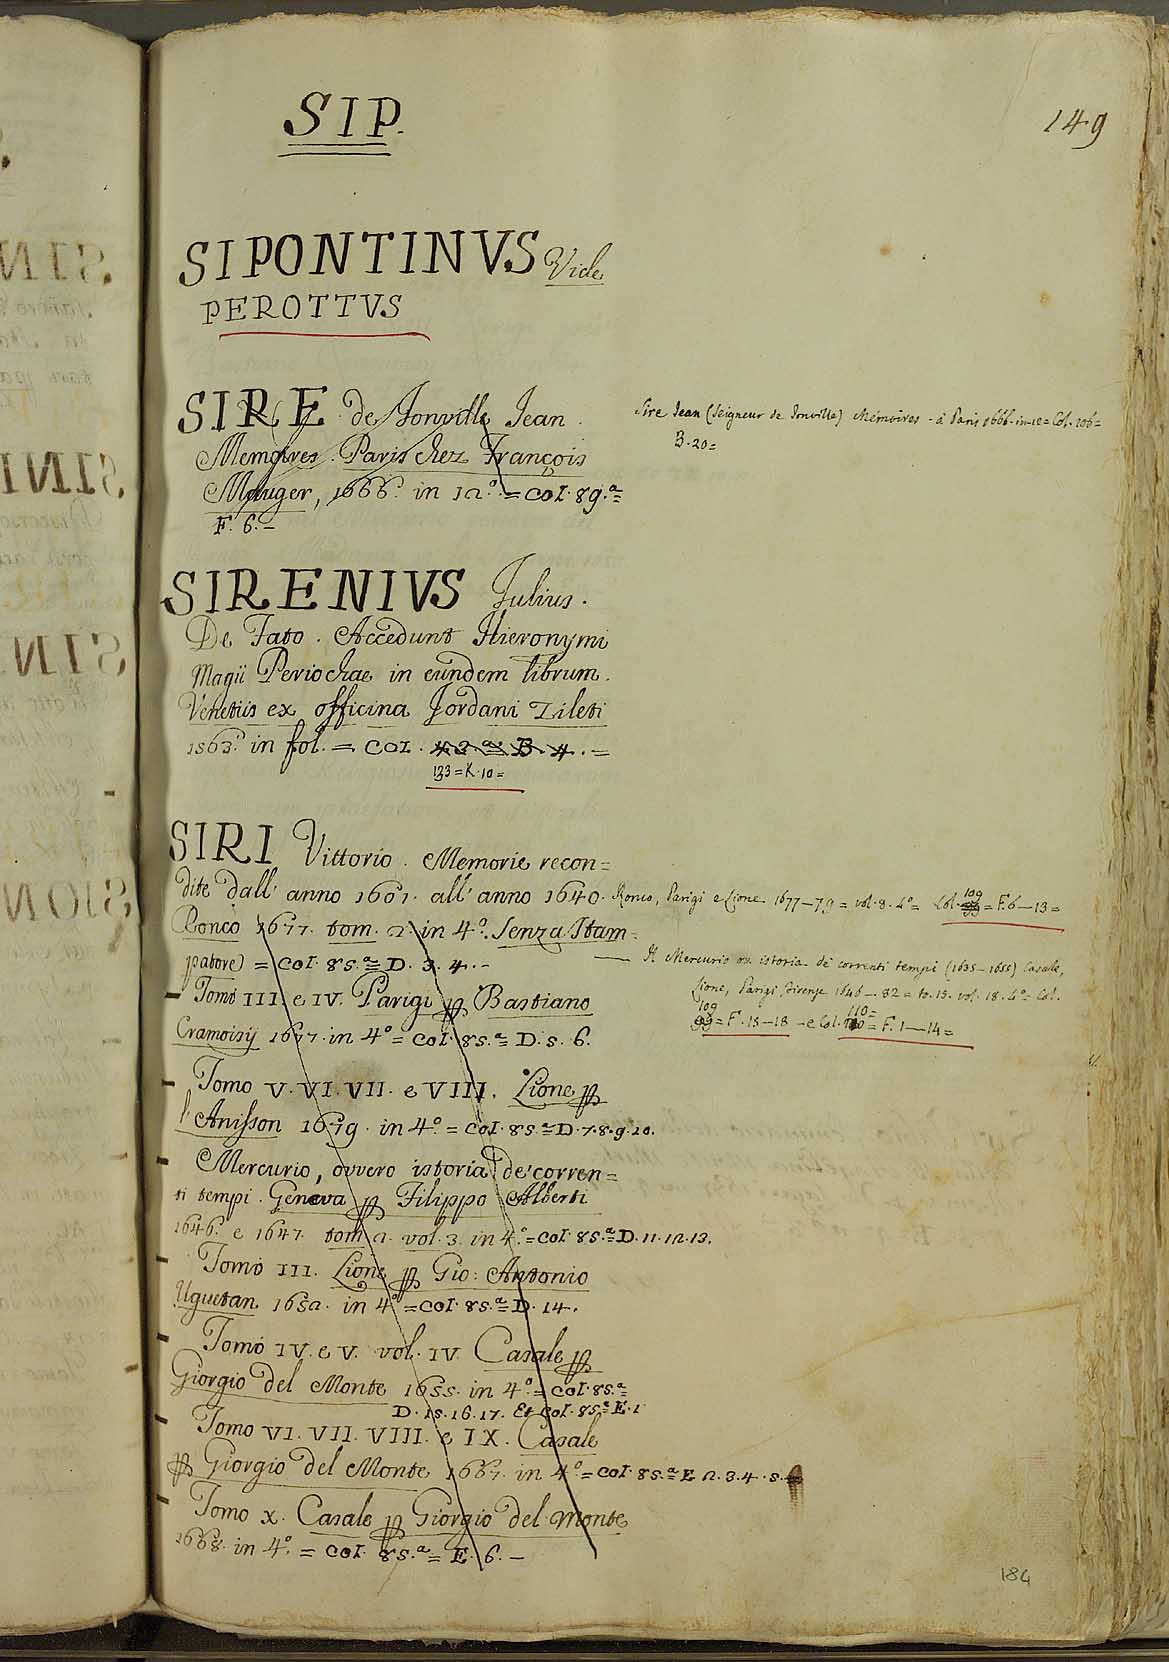 SIP.
149
SIPONTINVS Vide
PEROTTVS
SIRE de Jonville Jean.
Memoires. Paris chez François
Mauger, 1666. in 12.º = Col. 89.ª =
F. 6. -
Sire Jean (Seigneur de Jonville) Memoires - à Paris 1666 - in-12 = Col. 106 =
B. 20 =
SIRENIVS Julius.
De Fato. Accedunt Hieronymi
Magii Periochae in eundem librum.
Venetiis ex officina Jordani Zileti
1563. in fol. = Col.
133 = K. 10 =
SIRI Vittorio. Memorie recon=
dite dall' anno 1601. all' anno 1640.
Ronco 1677. tom. 2. in 4.º Senza Stam=
patore) = Col. 85.ª = D. 3. 4. -
Ronco, Parigi e Lione 1677-79 = vol. 8. 4.º = Col. 109 = F. 6 - 13 =
Il Mercurio ov. istoria de' correnti tempi (1635-1655) Casale,
Lione, Parigi Firenze 1646 - 82 = to. 15. vol. 18. 4.º = Col.
109 = F. 15 - 18 - e Col. 110 = F. 1 - 14 =
Tomo III. e IV. Parigi p Bastiano
Cramoisij 1677. in 4.º = Col. 85.ª = D. 5. 6.
Tomo V. VI. VII. e VIII. Lione p
l'Anisson 1679. in 4.º = Col. 85.ª = D. 7. 8. 9. 10.
Mercurio, ovvero istoria de' corren=
ti tempi. Geneva p Filippo Alberti
1646. e 1647. tom. 2. vol. 3. in 4.º = Col. 85.ª = D. 11. 12. 13.
Tomo III. Lione p Gio: Antonio
Uguetan 1652. in 4.º = Col. 85.ª = D. 14.
Tomo IV. e V. vol. IV. Casale p
Giorgio del Monte 1655. in 4.º = Col. 85.ª =
D. 15. 16. 17. Et Col. 85.ª = E. 1
Tomo VI. VII. VIII. e IX. Casale
p Giorgio del Monte 1667. in 4.º = Col. 85.ª = E. 2. 3. 4. 5.
Tomo X. Casale p Giorgio del Monte
1668. in 4.º = Col. 85.ª = E. 6. -
184